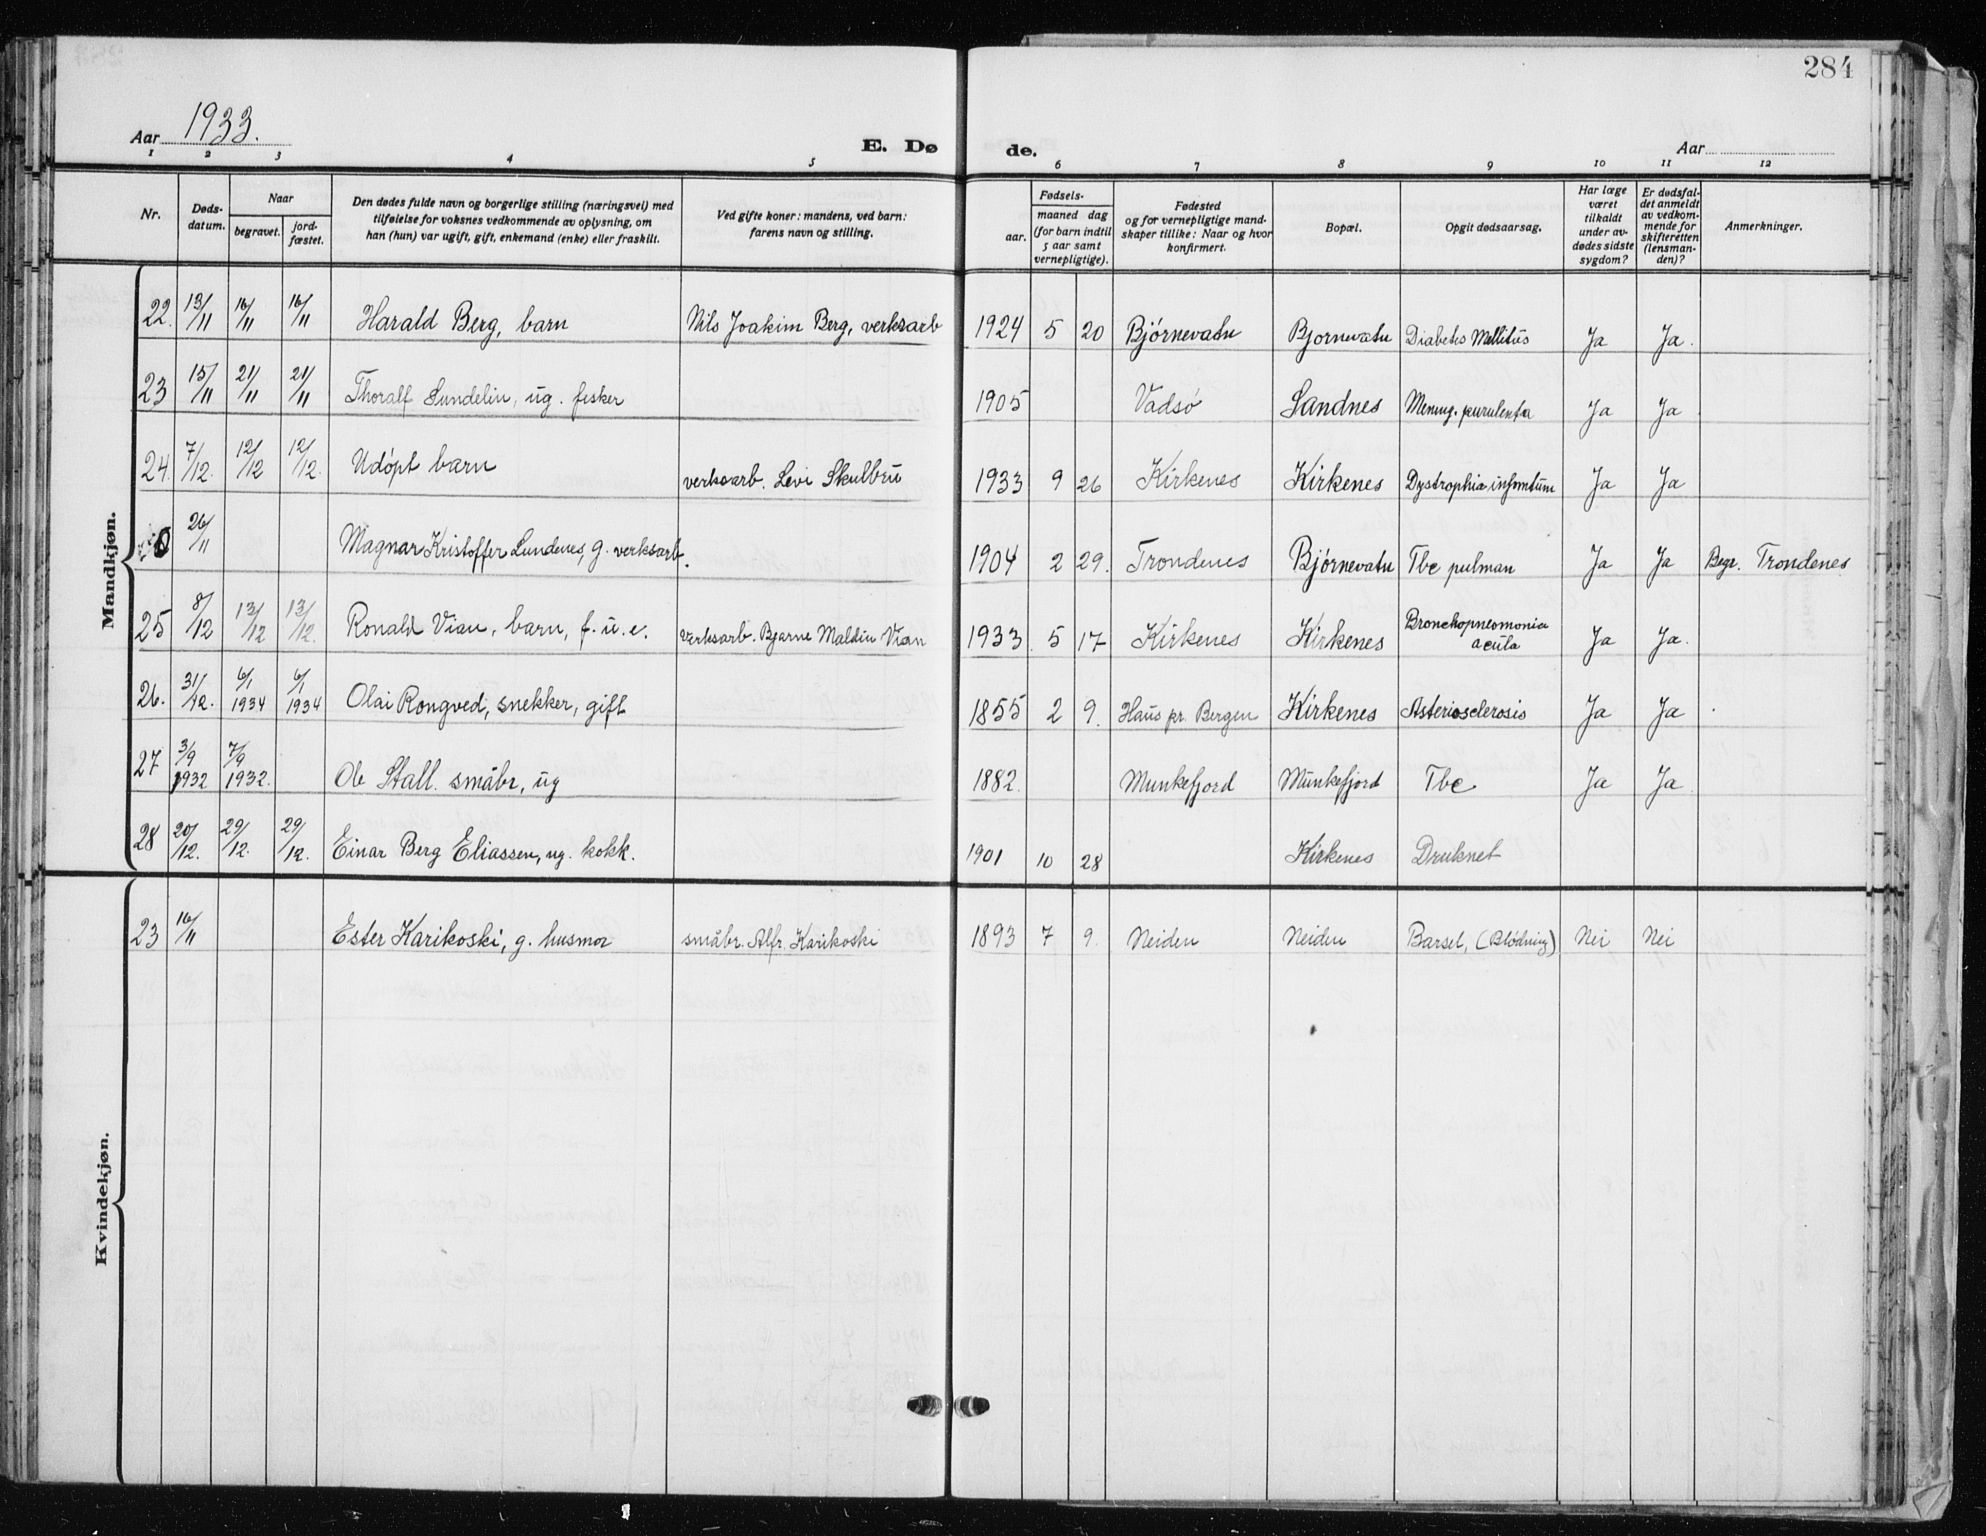 284
Aar 1933.
E. Dø
de.
Aar
1 2 3 4 5 6 7 8 9 10 11 12
Nr.
Døds-
datum.
Naar
begravet.
jord-
fæstet.
Den dødes fulde navn og borgerlige stilling (næringsvei) med
tilføielse for voksnes vedkommende av oplysning, om
han (hun) var ugift, gift, enkemand (enke) eller fraskilt.
Ved gifte koner: mandens, ved barn:
farens navn og stilling.
Fødsels-
aar.
maaned dag
(for barn indtil
5 aar samt
vernepligtige).
Fødested
og for vernepligtige mand-
skaper tillike: Naar og hvor
konfirmert.
Bopæl.
Opgit dødsaarsag.
Har læge
været
tilkaldt
under av-
dødes sidste
sygdom?
Er dødsfal-
det anmeldt
av vedkom-
mende for
skifteretten
(lensman-
den)?
Anmerkninger.
Mandkjøn.
22. 13/11 16/11 16/11 Harald Berg, barn Nils Joakim Berg, verksarb 1924 5 20 Bjørnevatn Bjornevatn Diabetes Mellitus Ja Ja.
23 15/11 21/11 21/11 Thoralf Lundelin, ug. fisker 1905 Vadsø Sandnes Mening. purulenta Ja Ja
24. 7/12. 12/12 12/12. Udøpt barn verksarb. Levi Skulbru 1933 9 26 Kirkenes Kirkenes Dystrophia infantum Ja Ja
0 26/11 Magnar Kristoffer Lundenes, g. verksarb. 1904 2 29. Trondenes Bjørnevatn Tbc pulman Ja Ja Begr. Trondenes
25 8/12 13/12 13/12. Ronald Vian, barn, f. u. e. verksarb. Bjarne Maldin Vian 1933 5 17 Kirkenes Kirkenes Bronchopneomonia
acuta Ja Ja.
26. 31/12. 6/1 1934 6/1 1934 Olai Rongved, snekker, gift 1855 2 9. Haus pr. Bergen Kirkenes Asteriosclerosis Ja Ja
27 3/9 1932 7/9 1932. Ole Stall. småbr, ug 1882. Munkefjord Munkefjord Tbc Ja Ja
28 20/12. 29/12. 29/12. Einar Berg Eliassen, ug. kokk. 1901 10 28 Kirkenes Druknet
Kvindekjøn.
23 16/11 Ester Karikoski, g. husmor småbr. Alfr. Karikoski 1893 7 9. Neiden Neiden Barsel, (Blødning) Nei Nei